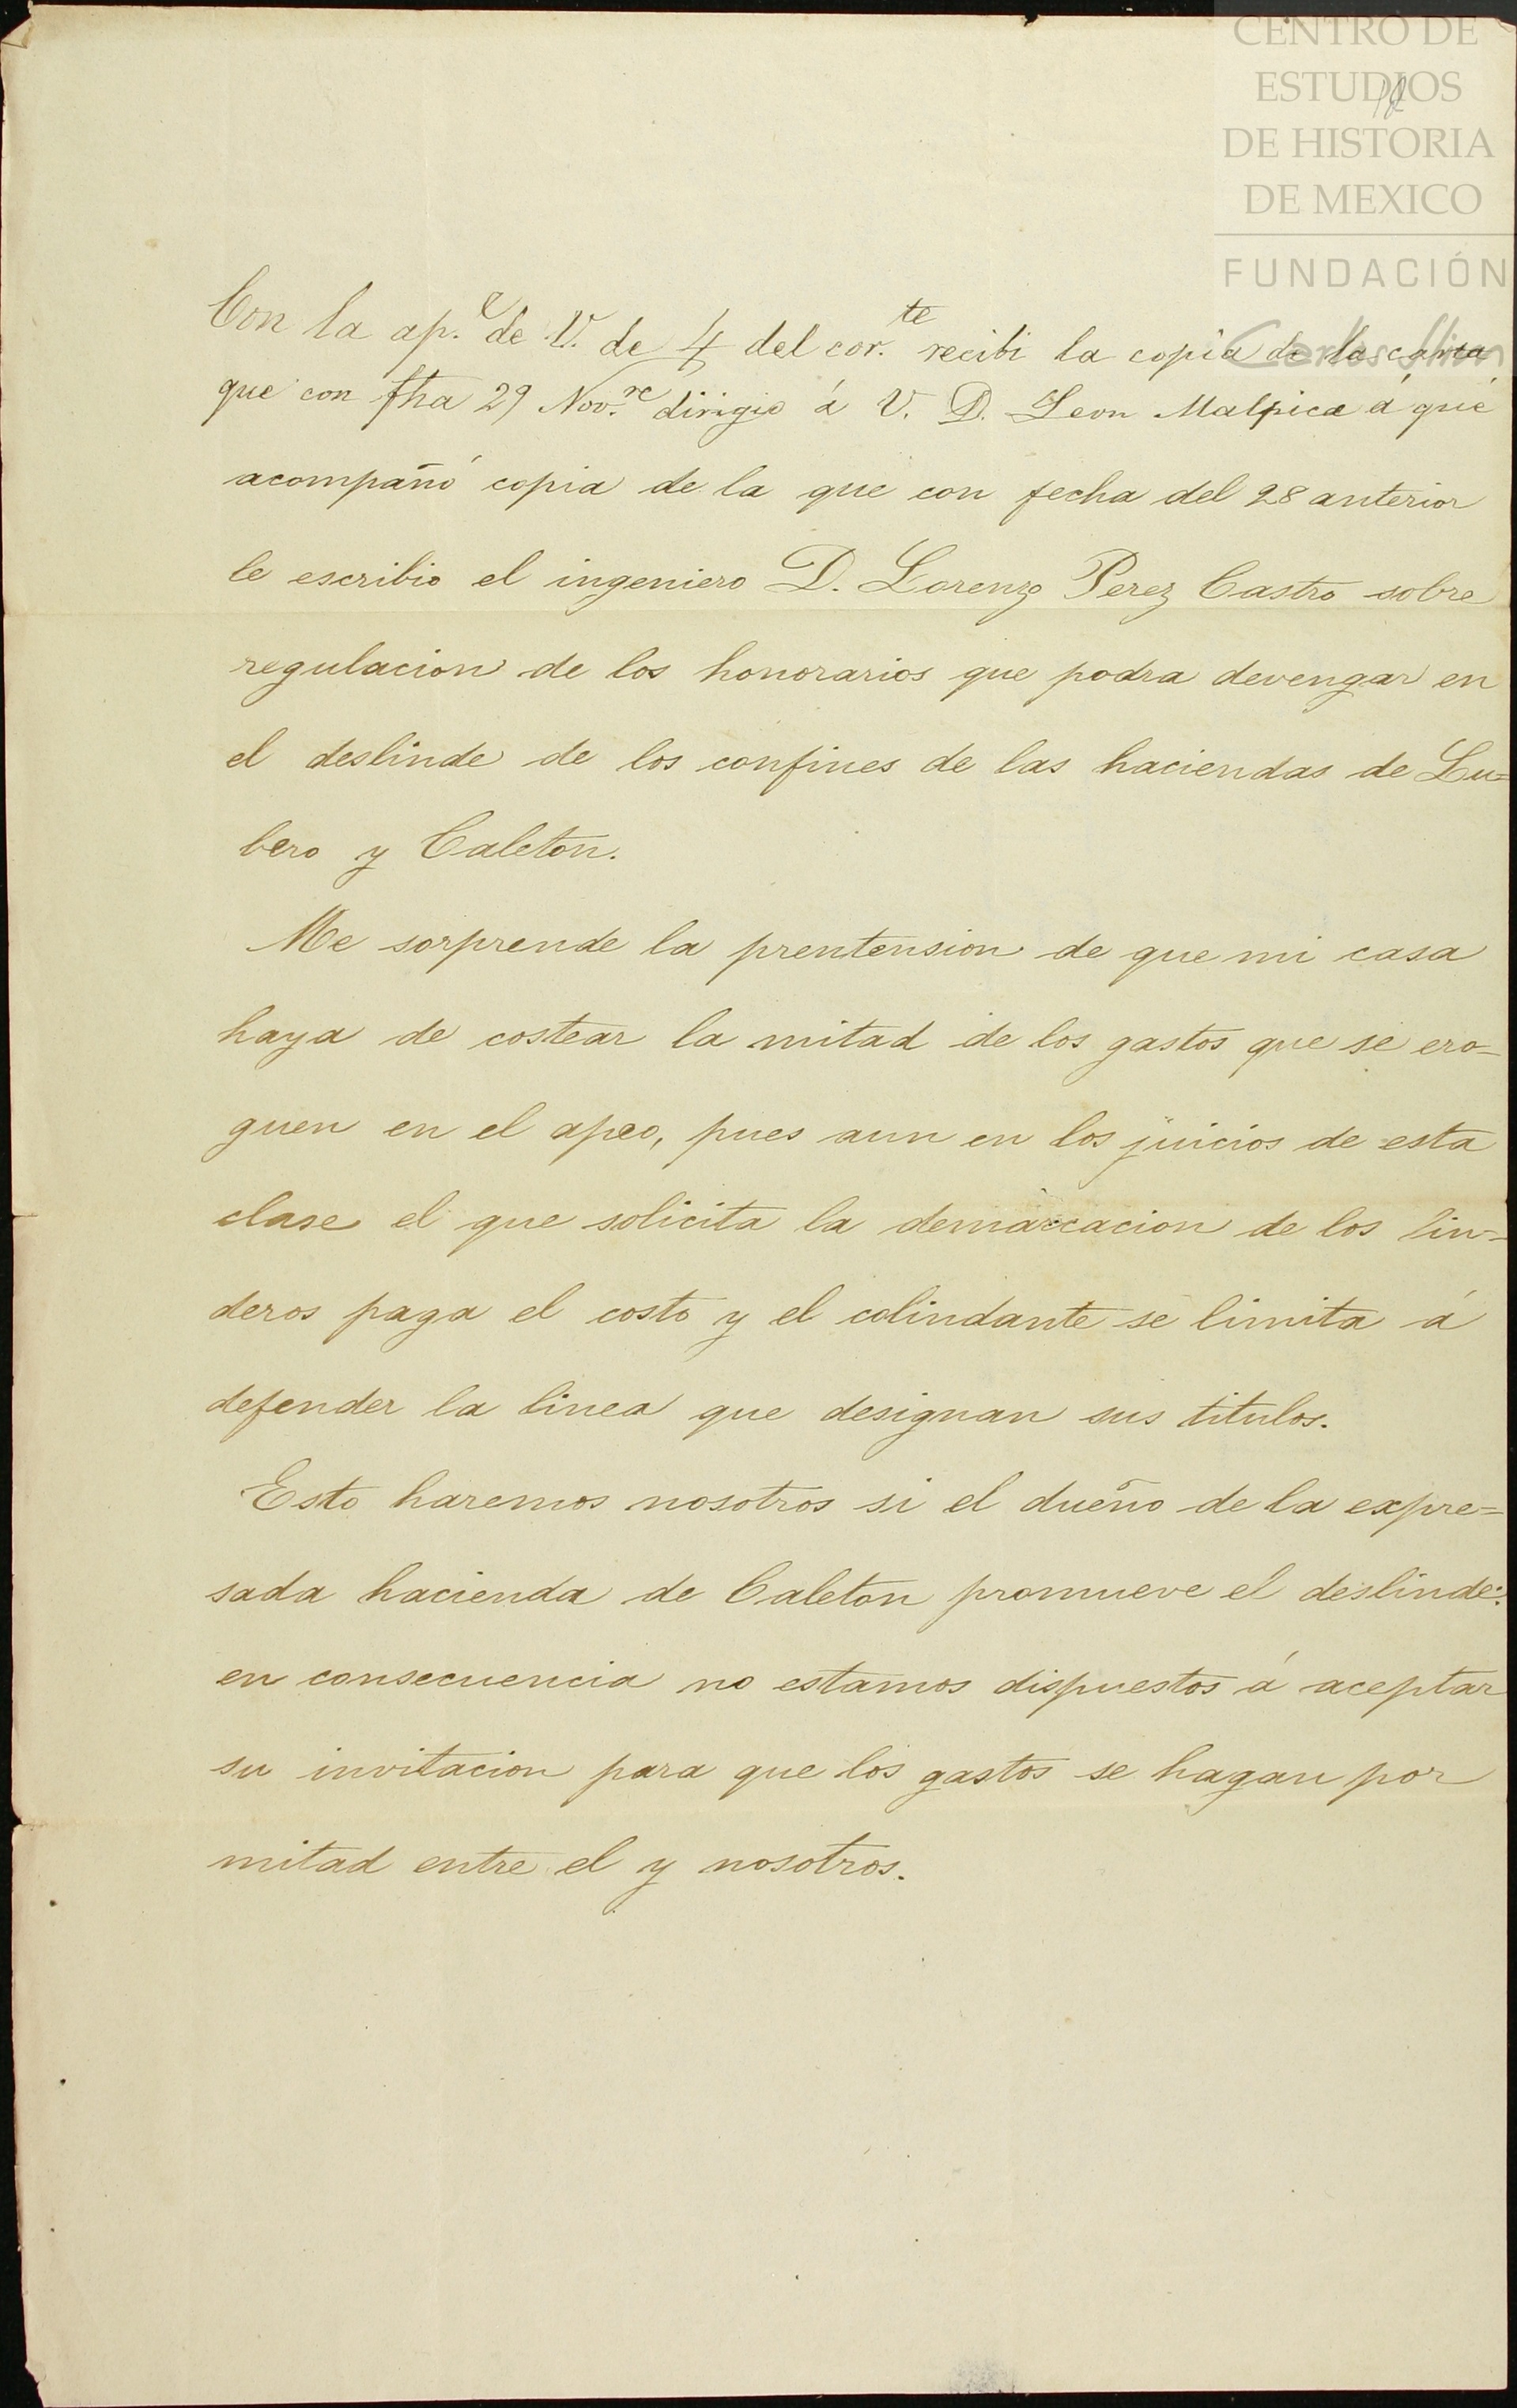 CENTRO DE
ESTUDIOS
DE HISTORIA
DE MEXICO
FUNDACIÓN
Carlos Slim
Con la ap.e de V. de 4 del cor.te recibi la copia de la carta
que con fha 29 Nov.re dirigio á V. D. Leon Malpica á que
acompañó copia de la que con fecha del 28 anterior
le escribio el ingeniero D. Lorenzo Perez Castro sobre
regulacion de los honorarios que podra devengar en
el deslinde de los confines de las haciendas de Lu=
bero y Caleton.
Me sorprende la prentension de que mi casa
haya de costear la mitad de los gastos que se ero-
guen en el apeo, pues aun en los juicios de esta
clase el que solicita la demarcacion de los lin-
deros paga el costo y el colindante se limita á
defender la linea que designan sus titulos.
Esto haremos nosotros si el dueño de la expre=
sada hacienda de Caleton promueve el deslinde:
en consecuencia no estamos dispuestos á aceptar
su invitacion para que los gastos se hagan por
mitad entre el y nosotros.